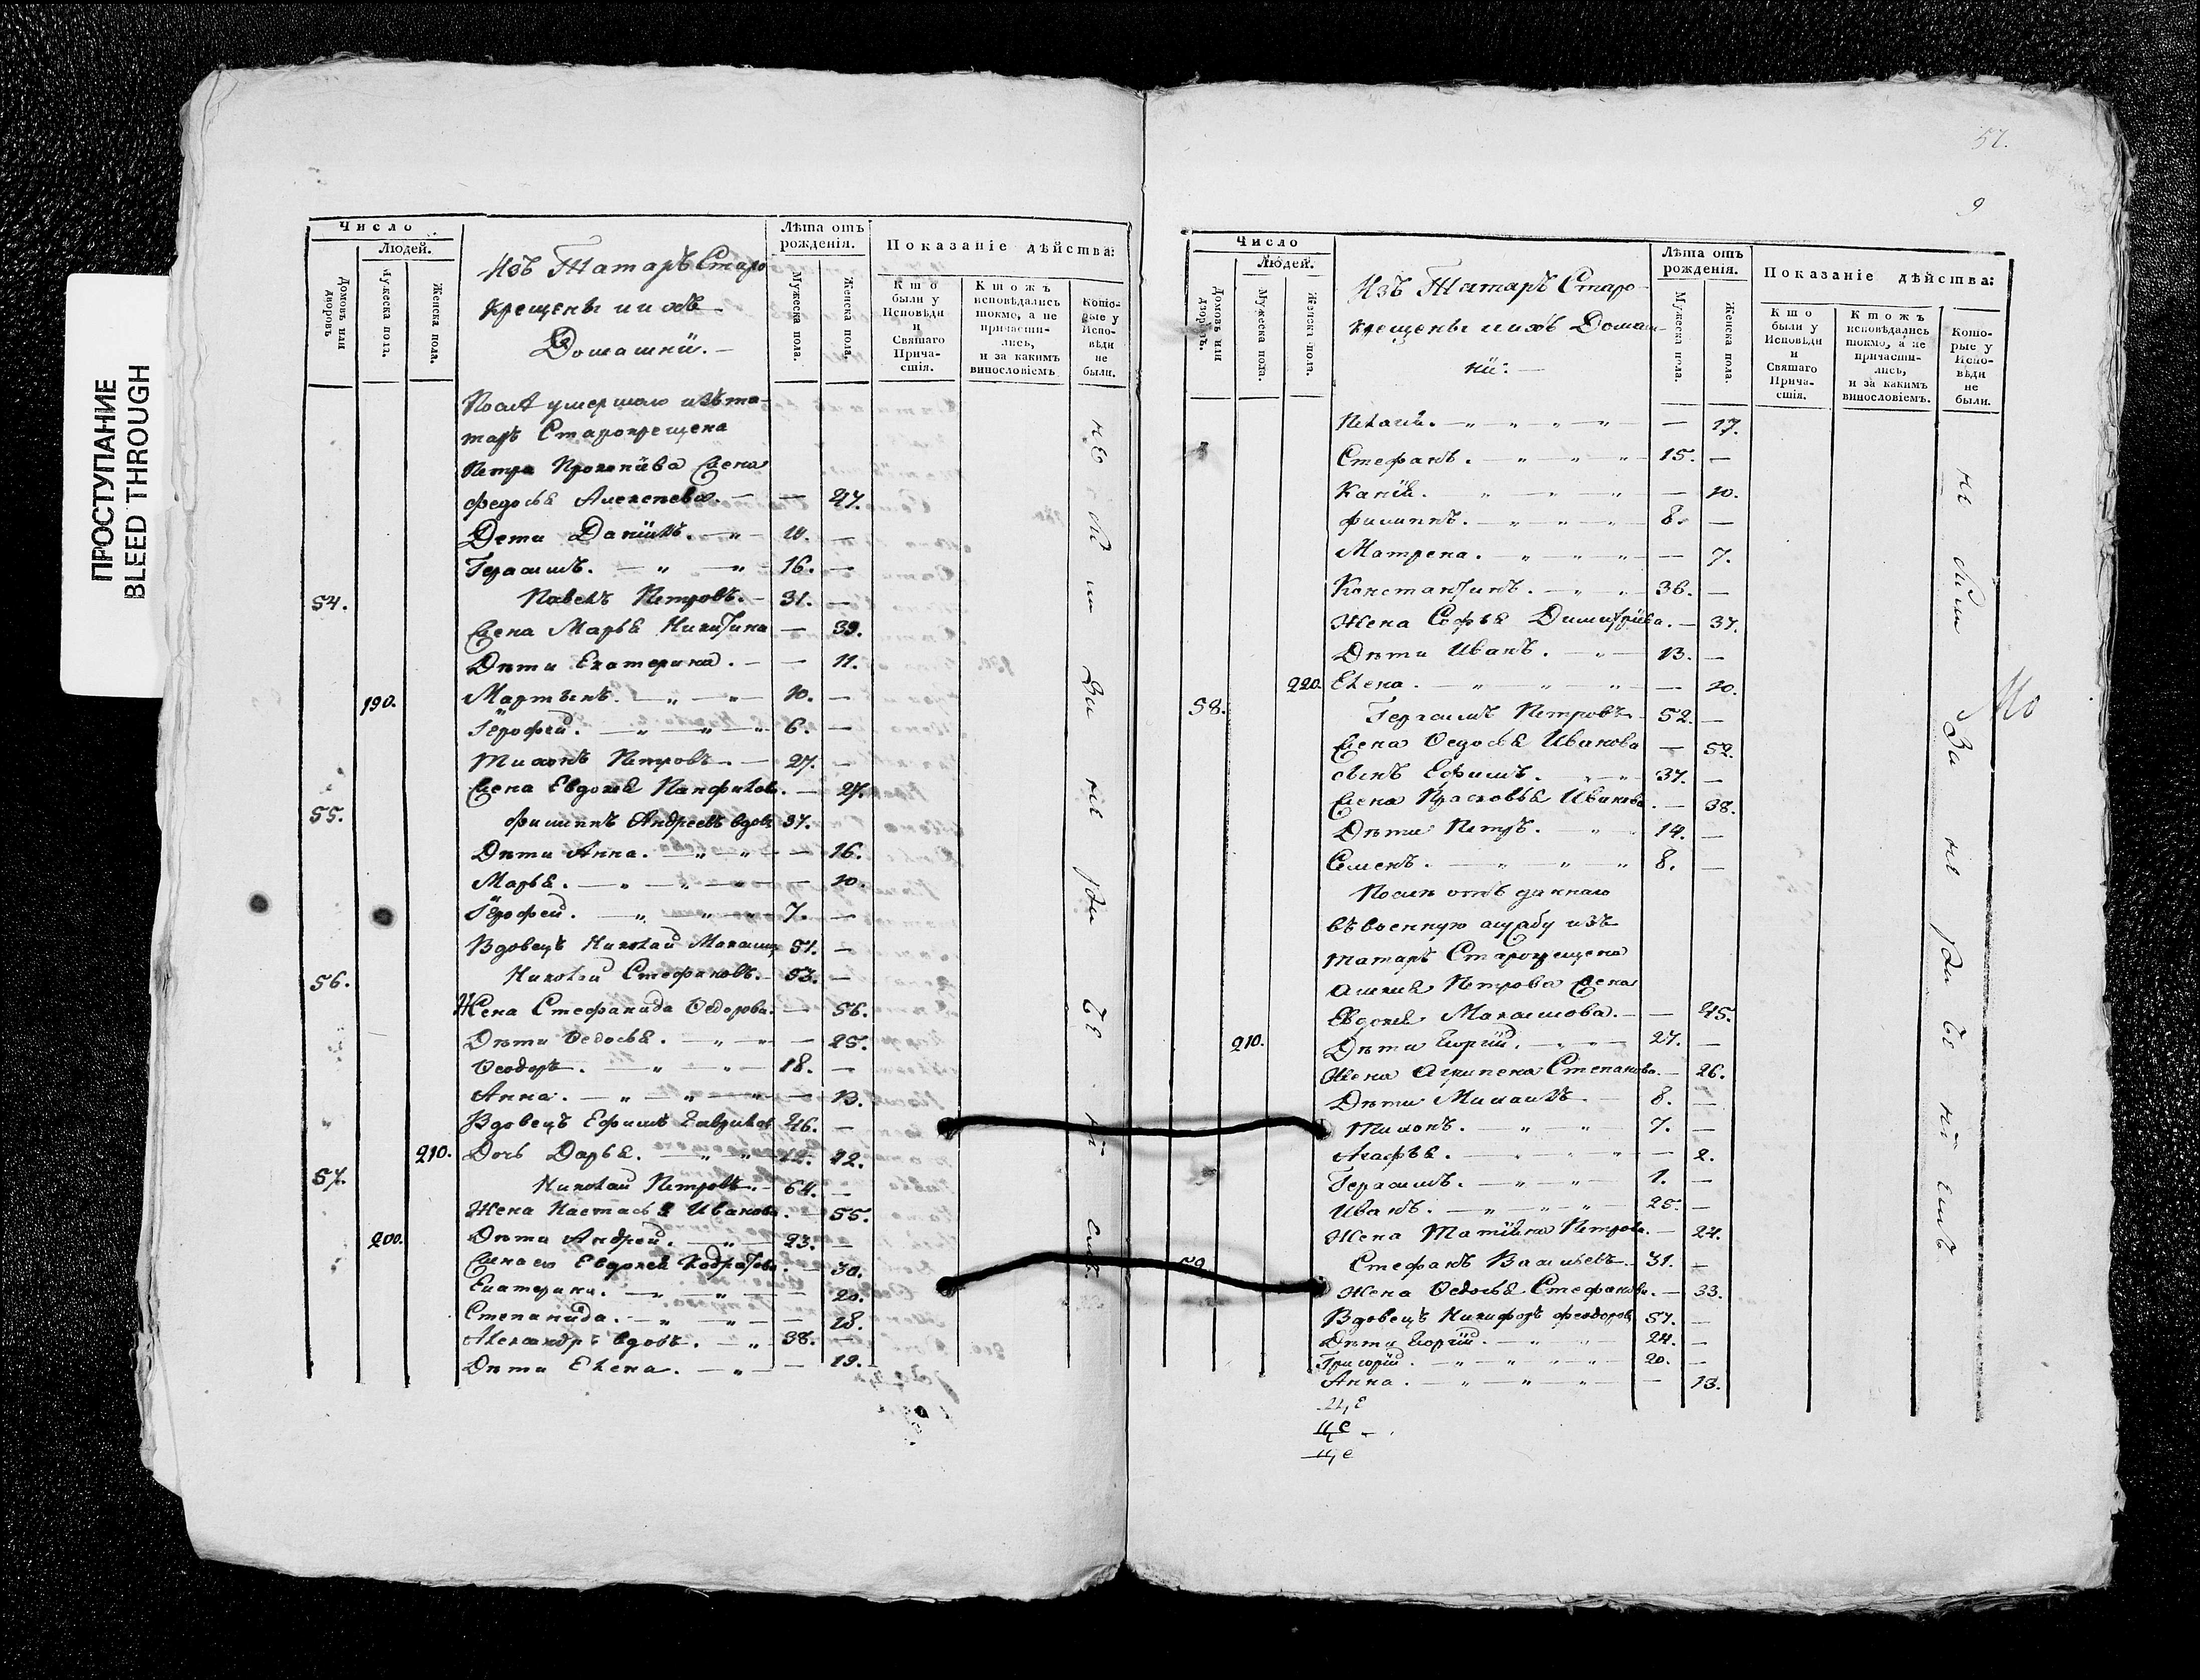 ПРОСТУПАНИЕ
BLEED THROUGH
Число
Людей.
Домовъ или дворовъ
Мужеска пола.
Женска пола.
Изъ Татаръ Старо
крещены и ихъ
Домашнїи. —
Лѣта отъ рожденія.
Мужеска пола.
Женска пола.
Показаніе дѣйства:
Кто были у Исповѣди и Святаго Причастія.
Ктожъ исповѣдались токмо, а не причастились, и за какимъ винословіемъ
Которые у Исповѣди не были.
Послѣ умершаго изъ та-
таръ Старокрещена
Петра Прокопїева Жена
Федосья — —
Дети Данїилъ. — „ —
Герасимъ. — „ — „ — 16. —
54. Павелъ Петровъ. — 31. —
Жена Марья Никитина — 39.
Дѣти Екатерина. — — 11.
190. Мартынъ. — „ — „ 10. —
Іерофей. — „ — „ — „ 6. —
Тихонъ Петровъ. — 27. —
Жена Евдокея Панфилов. — 27.
55. Филиппъ Андреевъ вдовъ 37. —
Дѣти Анна. — „ — „ — — 16.
Марья. — „ — „ — „ — 10.
Іерофей. — „ — „ — „ 7. —
Вдовецъ Николай 51. —
56. Николай Стефановъ. — 53. —
Жена Стефанида Ѳедорова. — 56.
Дѣти Ѳедосья. — „ — „ — 25.
Ѳеодоръ. — „ — „ — 18. —
Анна. — „ — „ — „ — 13.
Вдовецъ Ефимъ Гавриловъ 46. —
210. Дочь Дарья. — „ — „ 12.
57. Николай Петровъ. — 64. —
Жена Настасья Иванова. — 55.
200. Дѣти Андрей. — „ — 23. —
Жена ево Евдокея — 30.
Екатерина. — „ — „ — 20.
Степанида. — „ — „ — 18.
Александръ вдовъ. — „ 38. —
Дѣти Елена. — „ — — 19.
не
за не
57.
9
Число
Людей.
Домовъ или дворовъ.
Мужеска пола.
Женска пола.
Изъ Татаръ Старо-
крещены и ихъ Домаш-
нїи. —
Лѣта отъ рожденія.
Мужеска пола.
Женска пола.
Показаніе дѣйства:
Кто были у Исповѣди и Святаго Причастія.
Ктожъ исповѣдались токмо, а не причастились, и за какимъ винословіемъ.
Которые у Исповѣди не были.
— „ „ „ — 17.
Стефанъ. — „ „ „ 15. —
— 10.
Филиппъ. — „ „ „ 8. —
Матрена. — „ „ „ — 7.
Константинъ. — „ „ 36. —
Жена Софья Димитрїева. — 37.
Дѣти Иванъ. — „ — 13. —
220. Елена. — „ „ „ — 10.
58. Герасимъ Петровъ. 52. —
Жена Ѳедосья Иванова — 52.
сынъ Ефимъ. — „ 37. —
Жена Прасковья Иванова. — 38.
Дѣти Петръ. — „ 14. —
Семенъ. — „ „ „ 8. —
Послѣ отъ даннаго
въ военную службу изъ
татаръ Старокрещена
Петрова Жена
Евдокея Максимова. — — 45.
210. Дѣти Георгїй. — „ — 27. —
Жена Агрипена Степанова. — 26.
Дѣти Михаилъ. — 8. —
Тихонъ. — „ „ 7. —
— „ „ — 2.
Герасимъ. — „ — „ 1. —
Иванъ. — „ — „ — „ 25. —
Жена Татїяна Петрова. — 24.
59. Стефанъ Васильевъ. — 31. —
Жена Ѳедосья Стефанова. — 33.
Вдовецъ Никифоръ Феодоровъ 57. —
Дѣти Георгїй. — „ „ 24. —
Григорїй. — „ „ „ 20. —
Анна. — „ — „ „ — 13.
не были за не
Мо